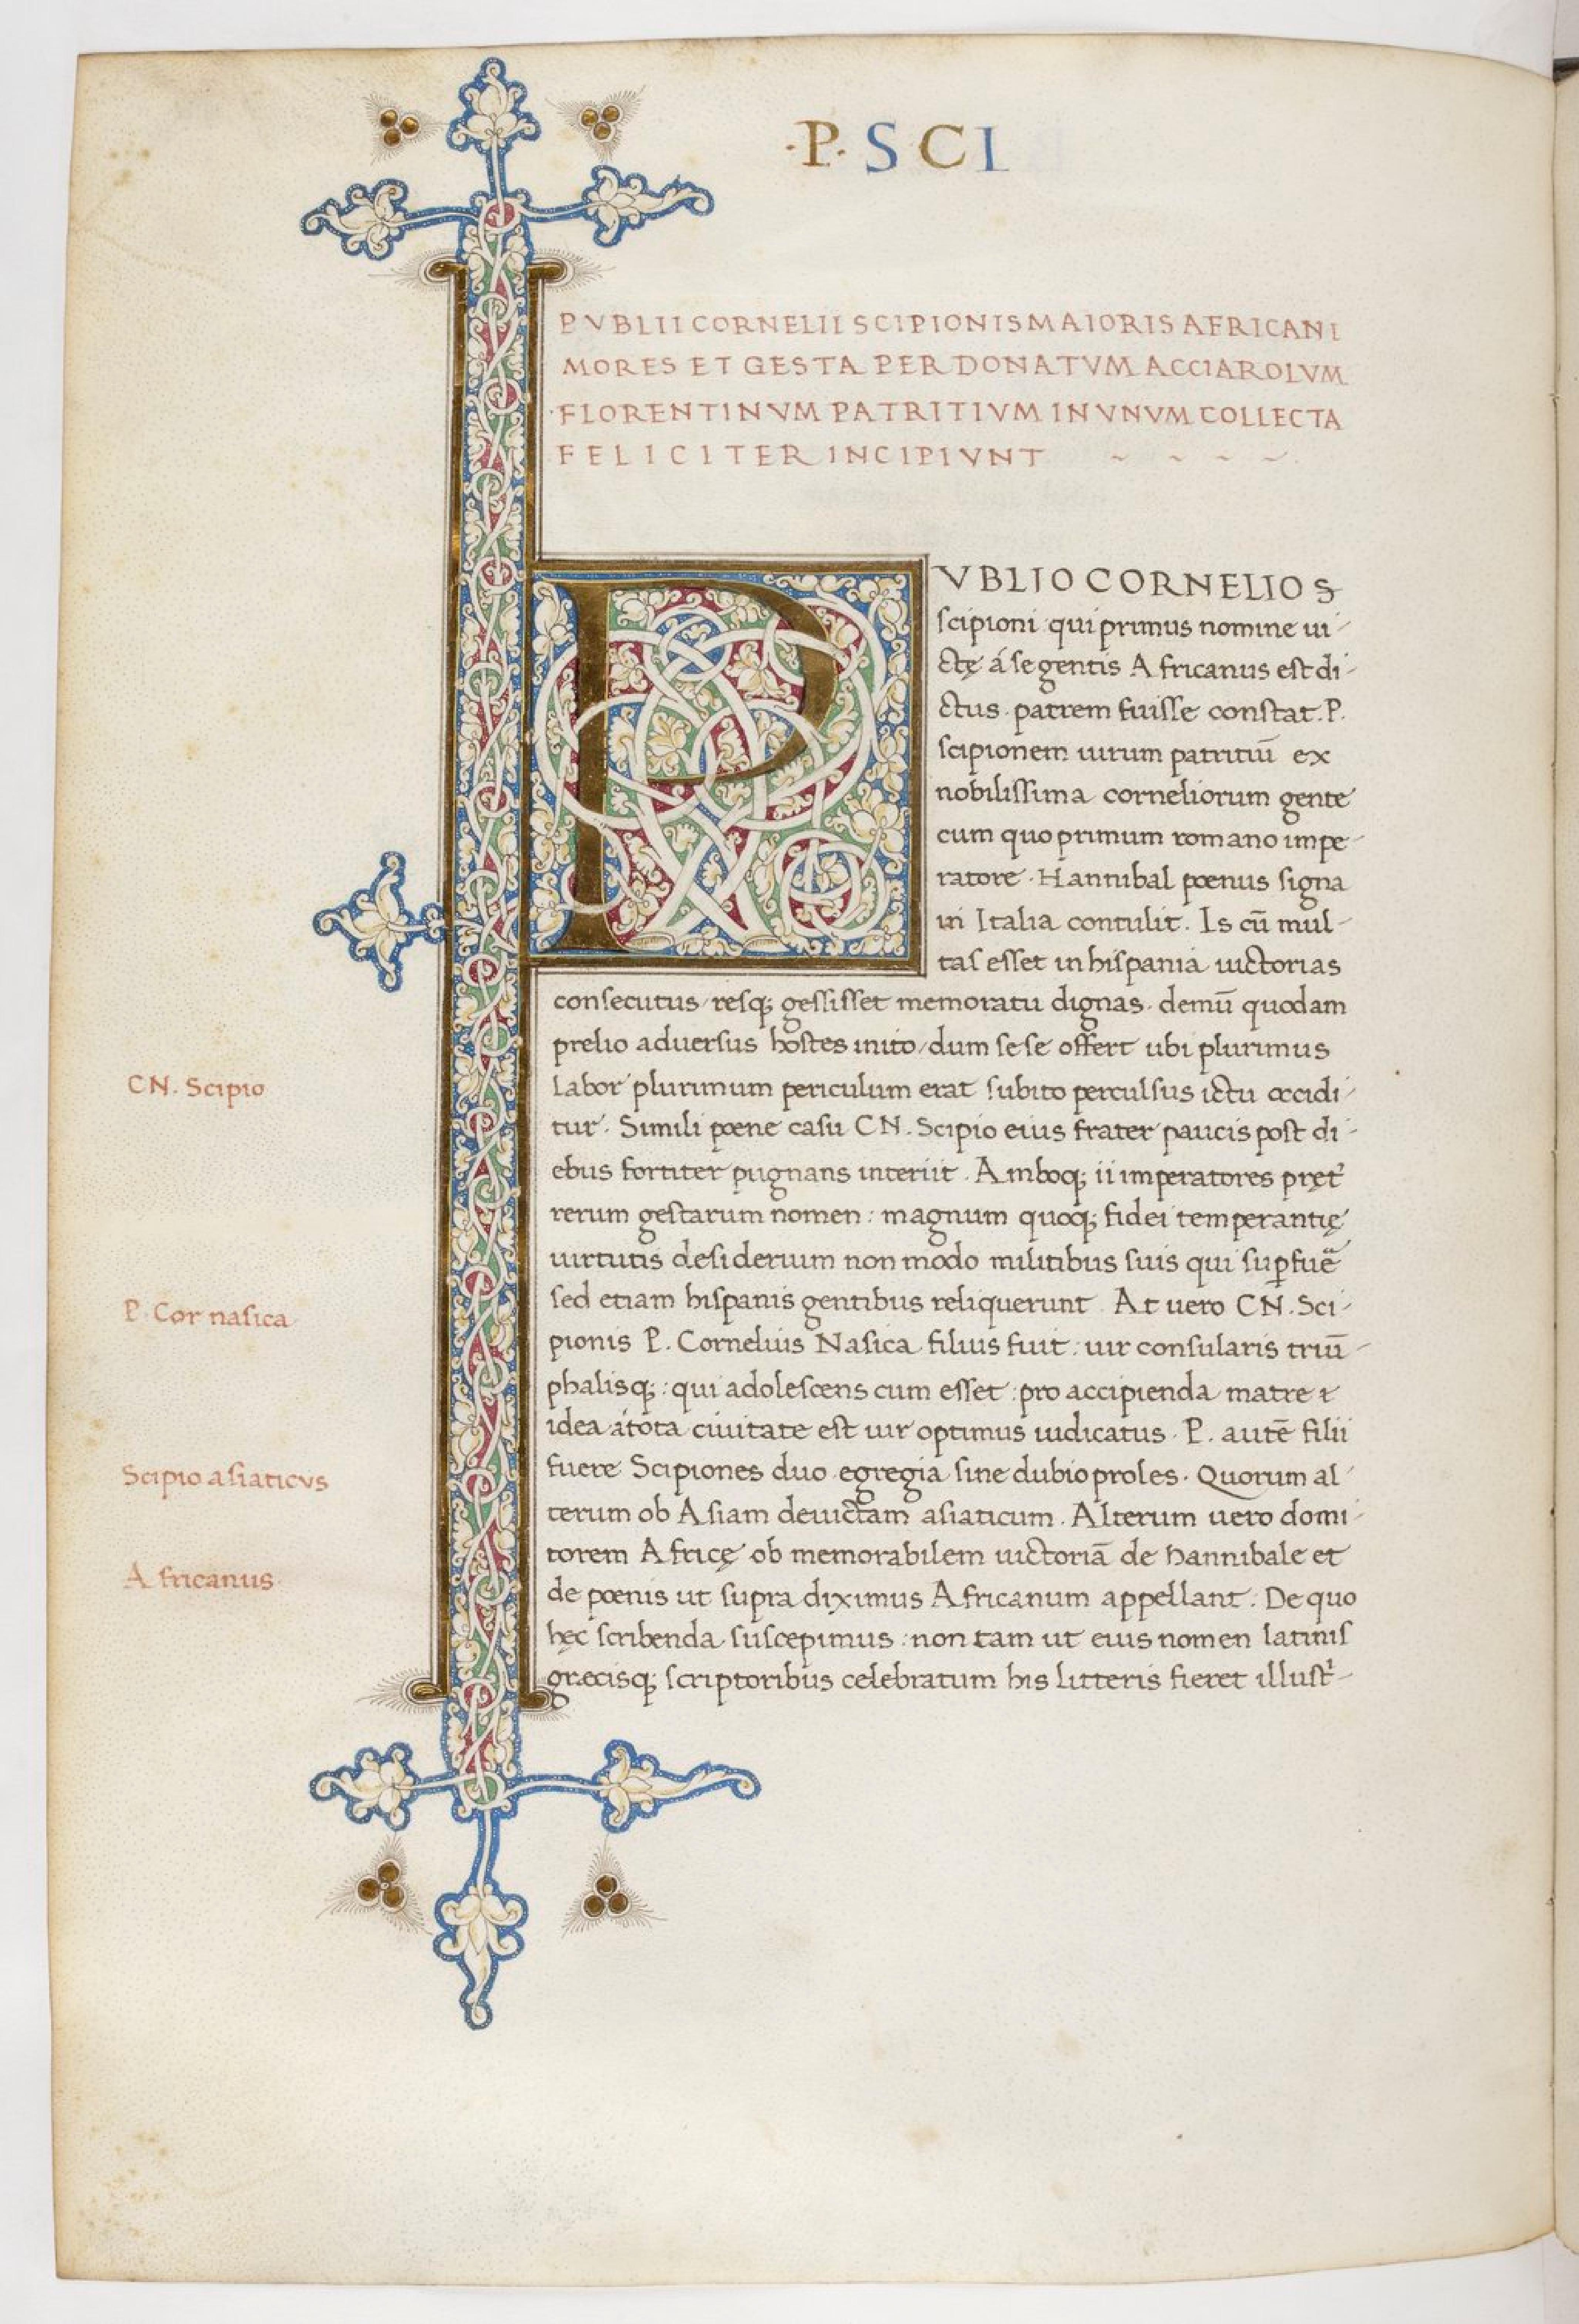 ·P· S C I
PVBLII CORNELII SCIPIONIS MAIORIS AFRICANI
MORES ET GESTA PER DONATVM ACCIAROLVM
FLORENTINVM PATRITIVM IN VNVM COLLECTA
FELICITER INCIPIVNT ~ ~ ~ ~
PVBLIO CORNELIO S
scipioni qui primus nomine ui-
ctę á se gentis Africanus est di-
ctus patrem fuisse constat. P.
scipionem uirum patritiū ex
nobilissima corneliorum gente
cum quo primum romano impe-
ratore Hannibal poenus signa
in Italia contulit. Is cū mul-
tas esset in hispania uictorias
consecutus resq; gessisset memoratu dignas. demū quodam
prelio aduersus hostes inito/dum sese offert ubi plurimus
Labor plurimum periculum erat subito perculsus ictu occidi-
CN. Scipio
tur. Simili poene casu CN. Scipio eius frater paucis post di-
ebus fortiter pugnans interiit. Amboq; ii imperatores pręt
rerum gestarum nomen: magnum quoq; fidei temperantię
uirtutis desiderium non modo militibus suis qui supfuē
sed etiam hispanis gentibus reliquerunt. At uero CN. Sci-
P. Cor nasica
pionis P. Cornelius Nasica filius fuit: uir consularis triū-
phalisq;: qui adolescens cum esset: pro accipienda matre
idea á tota ciuitate est uir optimus iudicatus. P. autē filii
fuere Scipiones duo egregia sine dubio proles. Quorum al-
Scipio asiaticvs
terum ob Asiam deuictam asiaticum. Alterum uero domi-
torem Africę ob memorabilem uictoriā de hannibale et
Africanus
de poenis ut supra diximus Africanum appellant: De quo
hęc scribenda suscepimus: non tam ut eius nomen latinis
græcisq; scriptoribus celebratum his litteris fieret illust-